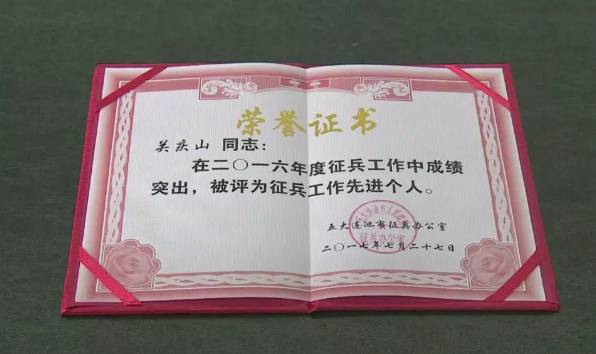 荣誉证书
吴庆山 同志：
在二〇一六年度征兵工作中成绩
突出，被评为征兵工作先进个人。
五大连池市征兵办公室
征兵办公室
二〇一七年七月二十七日